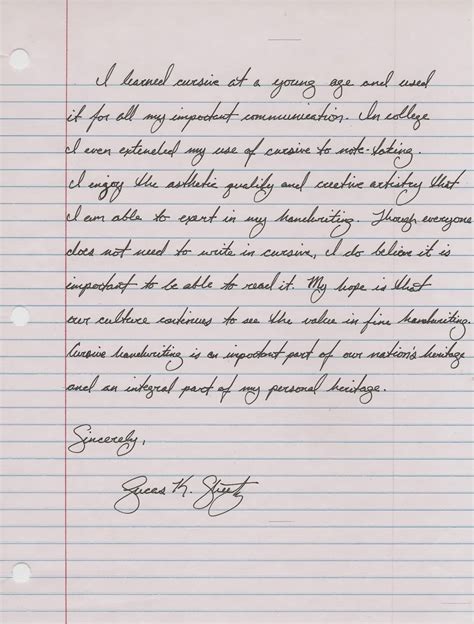 I learned cursive at a young age and used
it for all my important communication. In college
I even extended my use of cursive to note-taking.
I enjoy the asthetic quality and creative artistry that
I am able to exert in my handwriting. Though everyone
does not need to write in cursive, I do believe it is
important to be able to read it. My hope is that
our culture continues to see the value in fine handwriting.
Cursive handwriting is an important part of our nation's heritage
and an integral part of my personal heritage.
Sincerely,
K.